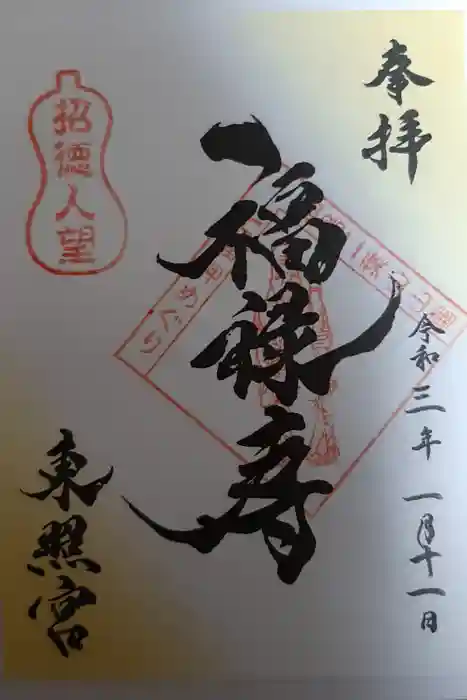 奉拝
令和三年 一月十一日
福禄寿
招徳人望
東照宮